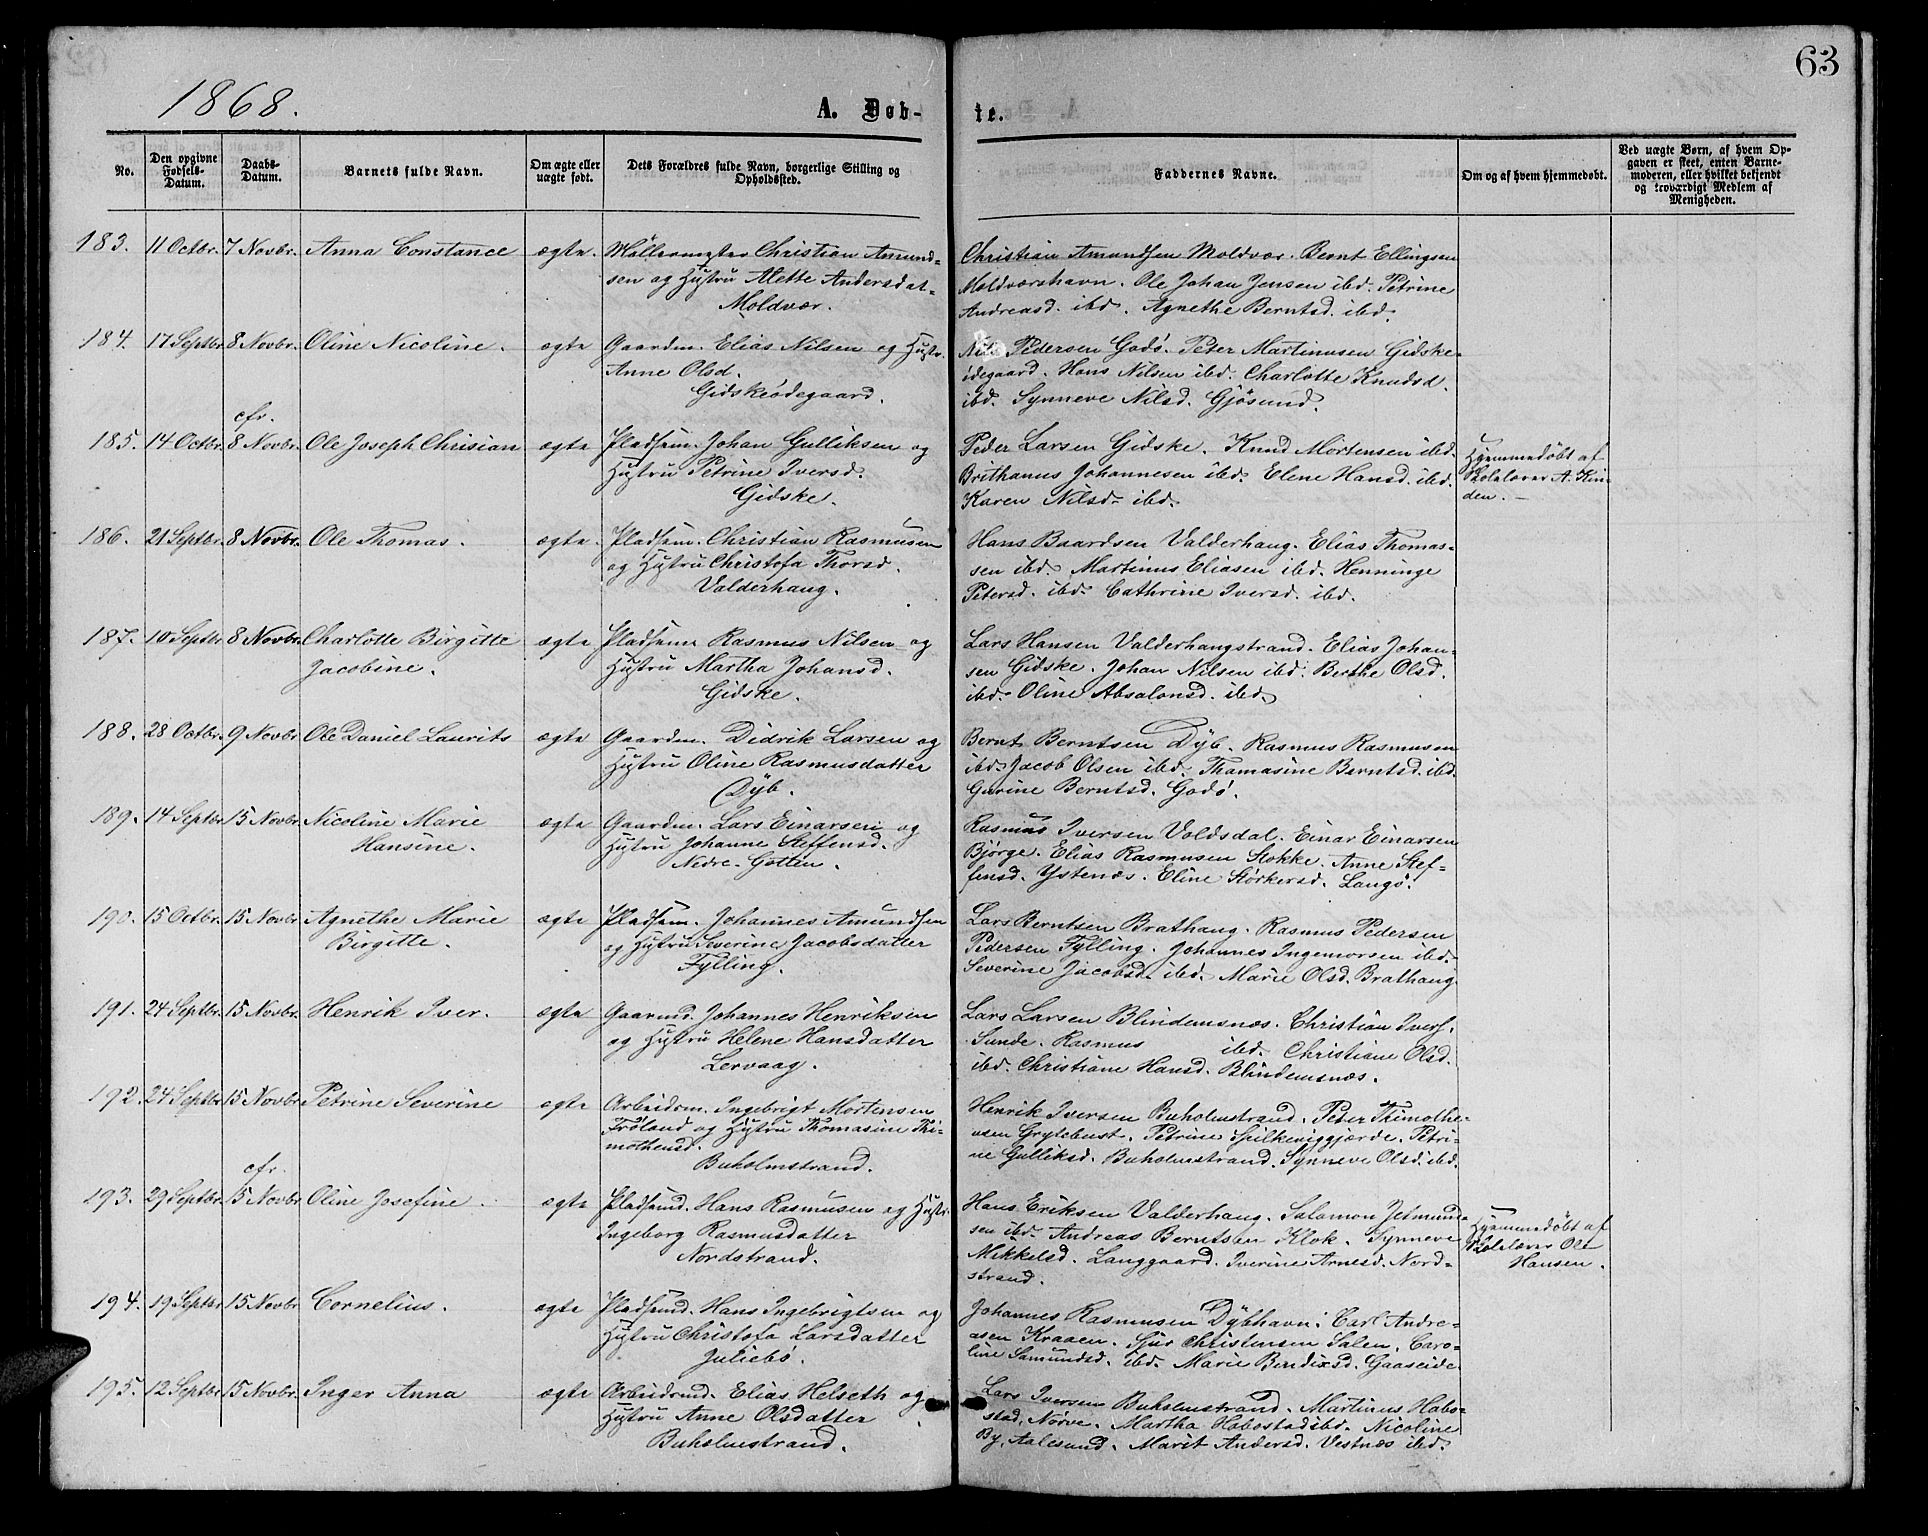 63
1868.
A. Döb-
te.
No.
Den opgivne Fødsels-Datum.
Daabs-Datum.
Barnets fulde Navn.
Om ægte eller uægte født.
Dets Forældres fulde Navn, borgerlige Stilling og Opholdssted.
Faddernes Navne.
Om og af hvem hjemmedøbt.
Ved uægte Børn, af hvem Op-
gaven er skeet, enten Barne-
moderen, eller hvilket bekjendt
og troværdigt Medlem af
Menigheden.
183. 11 Octbr. 7 Novbr. Anna Constance ægte. Møllermester Christian Amund-
sen og Hustru Alette Andersdat-
Moldvær.
Christian Amundsen Moldvær. Bernt Ellingsen
Moldværshavn. Ole Johan Jensen ibd. Petrine
Andreasd. ibd. Agnethe Berntsd. ibd.
184. 17 Septbr. 8 Novbr. Oline Nicoline. ægte Gaardm. Elias Nilsen og Hustr.
Anne Olsd.
Gidskeødegaard.
Nils Pedersen Godø. Peter Martinusen Gidske-
ødegaard. Hans Nilsen ibd. Charlotte Knudsd.
ibd. Synneve Nilsd. Gjøsund.
cfr.
185. 14 Octbr. 8 Novbr. Ole Joseph Chrisian ægte Pladsem. Johan Gulliksen og
Hustru Petrine Iversd.
Gidske.
Peder Larsen Gidske. Knud Mortensen ibd.
Brithanus Johannesen ibd. Elene Hansd. ibd.
Karen Nilsd. ibd.
Hjemmedøbt af
Skolelærer A. Kin-
den.
186. 21 Septbr. 8 Novbr. Ole Thomas. ægte. Pladsem. Christian Rasmusen
og Hustru Christofa Thorsd.
Valderhaug.
Hans Baardsen Valderhaug. Elias Thomas-
sen ibd. Martinus Eliasen ibd. Henninge
Petersd. ibd. Cathrine Iversd. ibd.
187. 10 Septbr. 8 Novbr. Charlotte Birgitte
Jacobine.
ægte Pladsem Rasmus Nilsen og
Hustru Martha Johansd.
Gidske.
Lars Hansen Valderhaugstrand. Elias Johan-
sen Gidske. Johan Nilsen ibd. Berthe Olsd.
ibd. Oline Absalonsd. ibd.
188. 28 Octbr. 9 Novbr Ole Daniel Laurits ægte Gaardm. Didrik Larsen og
Hustru Oline Rasmusdatter
Dÿb.
Bernt Berntsen Dÿb. Rasmus Rasmusen
ibd. Jacob Olsen ibd. Thomasine Berntsd. ibd.
Gurine Berntsd. Godø.
189. 14 Septbr 15 Novbr. Nicoline Marie
Hansine.
ægte Gaardm. Lars Einarsen og
Hustru Johanne Steffensd.
Nedre-Gotten.
Rasmus Iversen Voldsdal. Einar Einarsen
Bjørge. Elias Rasmusen Stokke. Anne Stef-
fensd. Ystenæs. Eline Størkersd. Langø.
190. 15 Octbr. 15 Novbr. Agnethe Marie
Birgitte.
ægte Pladsem. Johannes Amundsen
og Hustru Severine Jacobsdatter
Fylling.
Lars Berntsen Brathaug. Rasmus Pedersen
Pedersen Fylling. Johannes Ingemorsen ibd.
Severine Jacobsd. ibd. Marie Olsd. Brathaug
191. 24 Septbr. 15 Novbr. Henrik Iver. ægte Gaarmd. Johannes Henriksen
og Hustru Helene Hansdatter
Lervaag.
Lars Larsen Blindemsnæs. Christian Ivers.
Sunde. Rasmus ibd. Christiane Olsd.
ibd. Christiane Hansd. Blindemsnæs.
192. 24 Septbr 15 Novbr Petrine Severine ægte Arbeidsm. Ingebrigt Mortensen
Frøland og Hustru Thomasine Thi-
motheusd.
Buholmstrand.
Henrik Iversen Buholmstrand. Peter Thimothe-
usen Grytebust. Petrine Spilkeviggjerde. Petri-
ne Gulliksd. Buholmstrand. Synneve Olsd. ibd.
cfr.
193. 29 Septbr 15 Novbr Oline Josefine. ægte Pladsmd. Hans Rasmusen og Hustr.
Ingeborg Rasmusdatter
Nordstrand.
Hans Eriksen Valderhaug. Salamon Jetmund-
sen ibd. Andreas Berntsen Klok. Synneve
Mikkelsd. Langgaard. Iverine Arnesd. Nord-
strand.
Hjemmedøbt af
Skolelærer Ole
Hansen.
194. 19 Septbr 15 Novbr Cornelius. ægte Pladsmd. Hans Ingebrigtsen og
Hustru Christofa Larsdatter
Juliebø.
Johannes Rasmusen Dÿbhavn. Carl Andre-
asen Kraaen. Sjur Christensen Salen. Caro-
line Samundsd. ibd. Marie Bendixsd. Gaaseide
195. 12 Septbr 15 Novbr. Inger Anna ægte Arbeidsmd. Elias Helseth og
Hustru Anne Olsdatter
Buholmestrand.
Lars Iversen Buholmstrand. Martinus Habo-
stad, Nørve. Martha Habostad ibd. Nicoline
By, Aalesund. Marit Andersd. Vestnæs ibd.